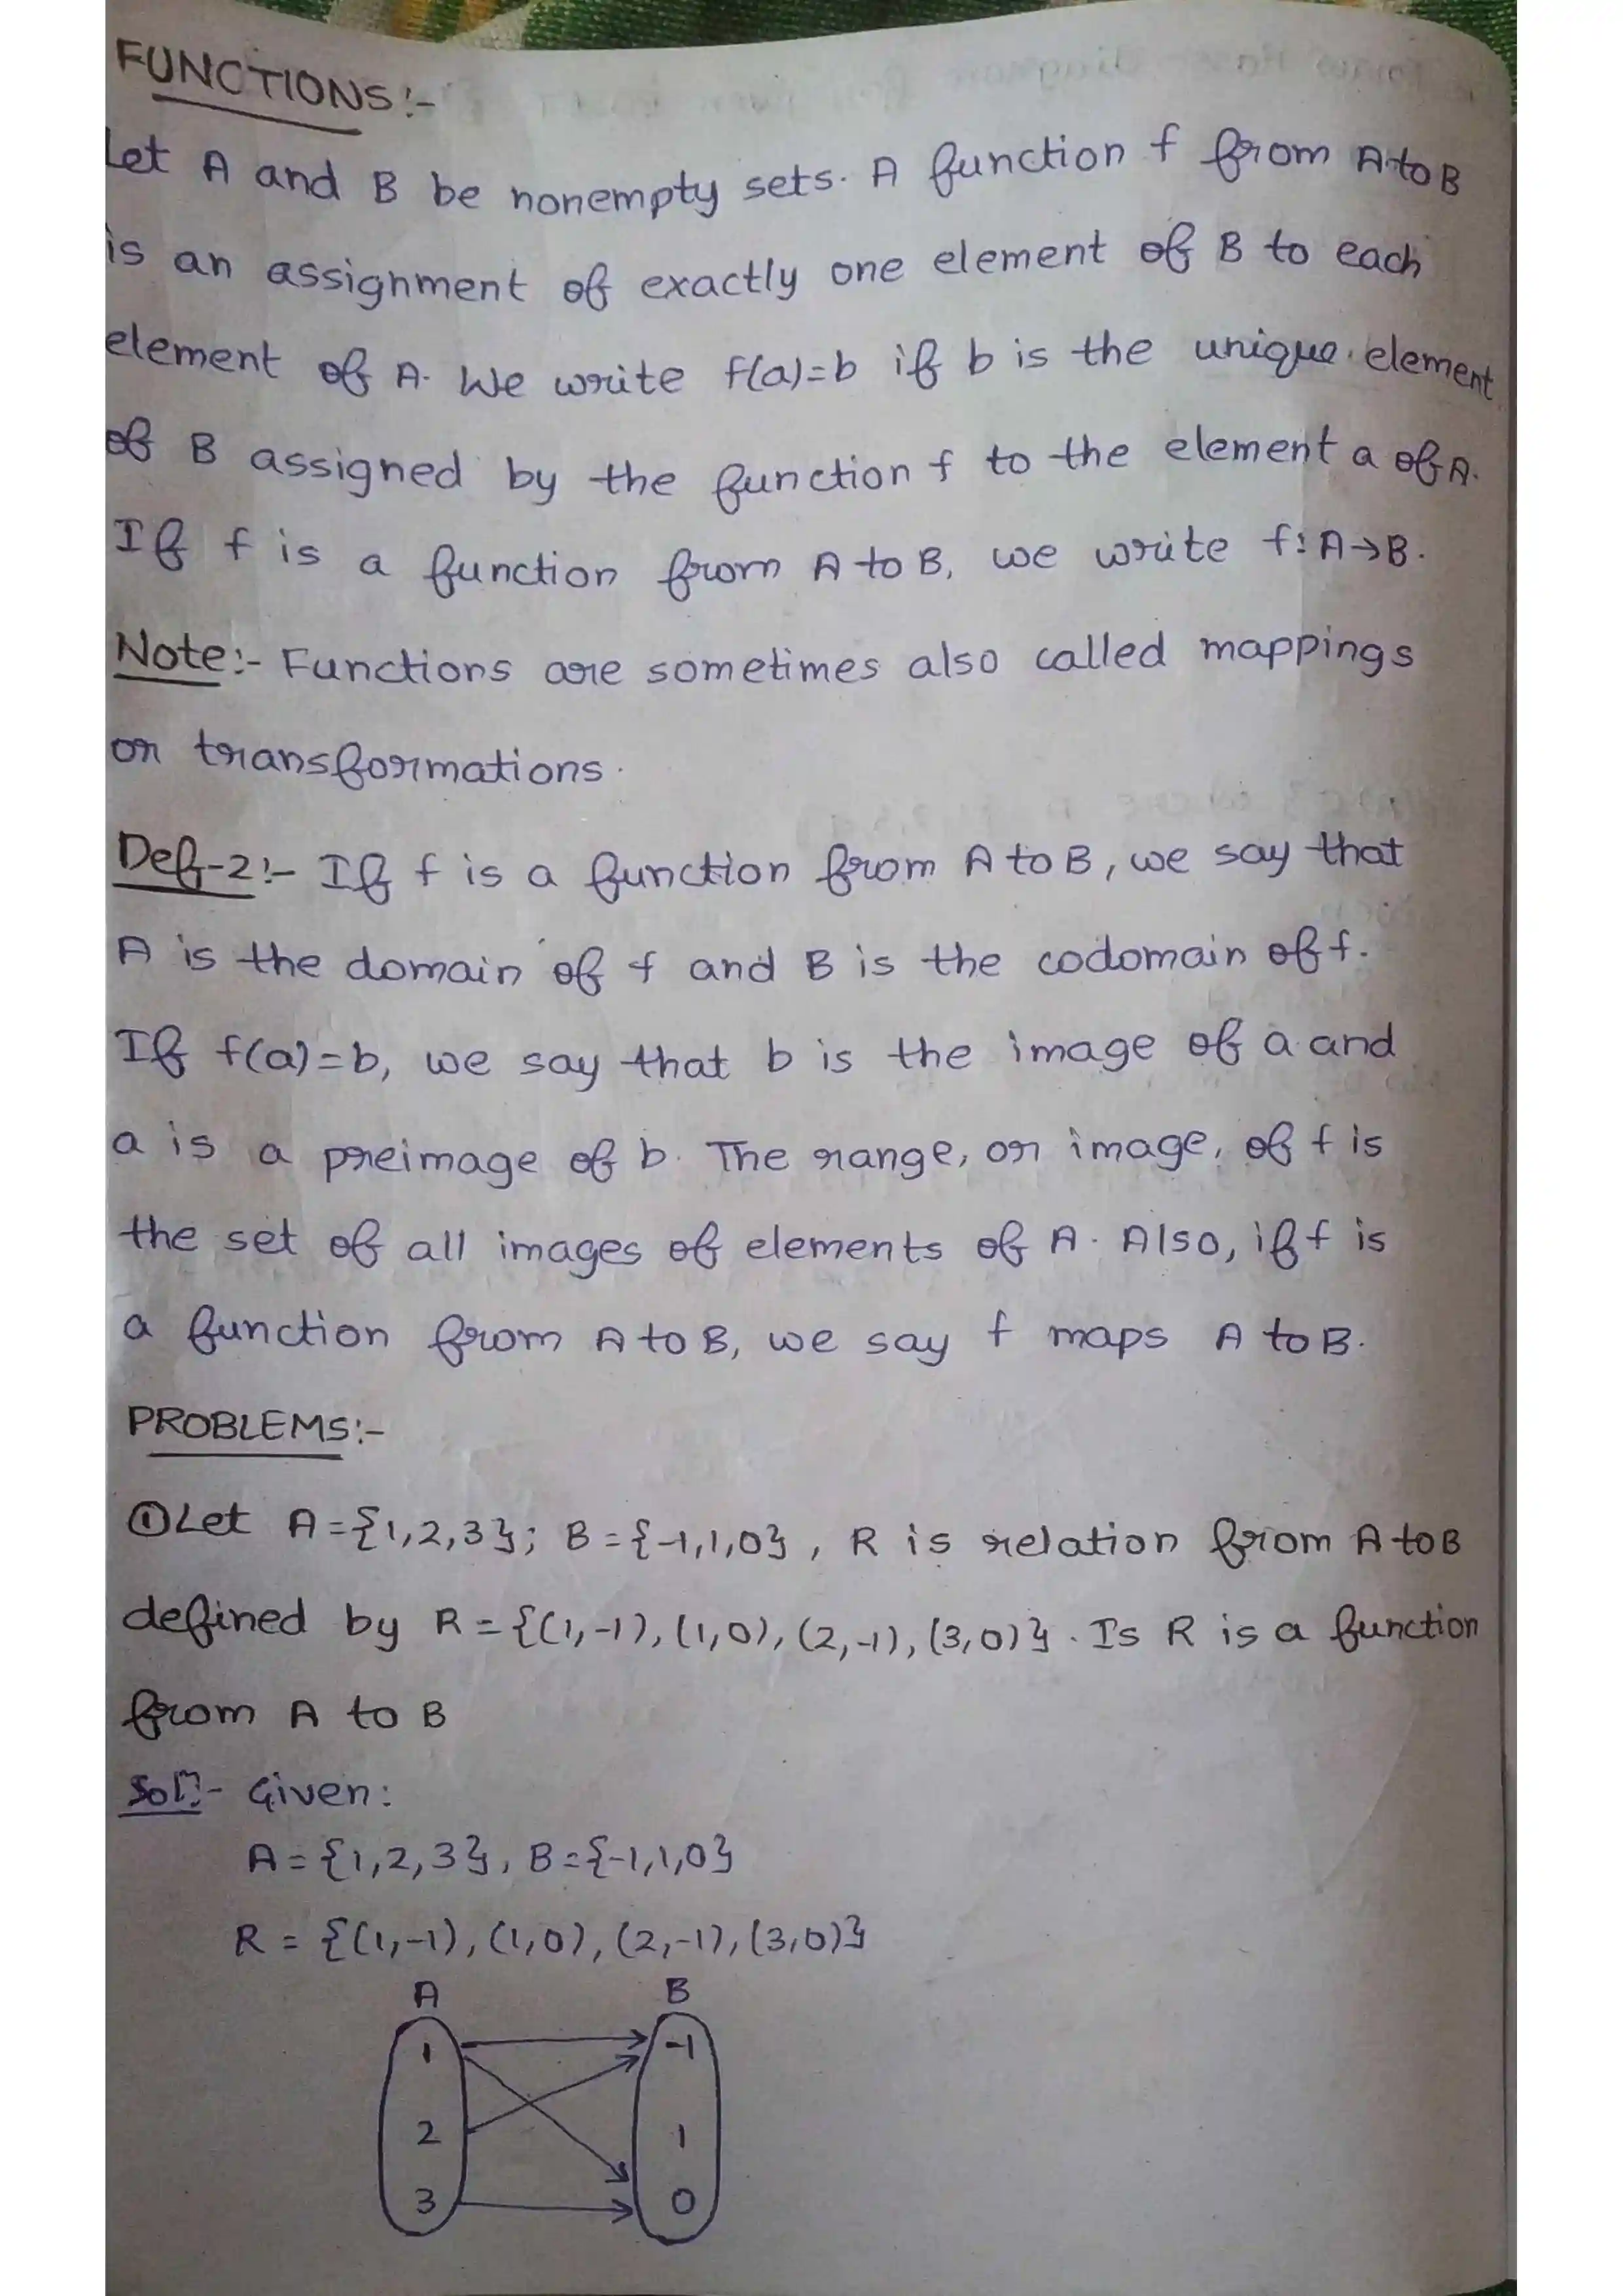 FUNCTIONS:-
Let A and B be nonempty sets. A function f from A to B
is an assignment of exactly one element of B to each
element of A. We write f(a)=b if b is the unique element
of B assigned by the function f to the element a of A.
If f is a function from A to B, we write f: A→B.
Note:- Functions are sometimes also called mappings
or transformations.
Def-2:- If f is a function from A to B, we say that
A is the domain of f and B is the codomain of f.
If f(a)=b, we say that b is the image of a and
a is a preimage of b. The range, or image, of f is
the set of all images of elements of A. Also, if f is
a function from A to B, we say f maps A to B.
PROBLEMS:-
① Let A={1,2,3}; B={-1,1,0}, R is relation from A to B
defined by R={(1,-1),(1,0),(2,-1),(3,0)}. Is R is a function
from A to B
Soln:- Given:
A={1,2,3}, B={-1,1,0}
R = {(1,-1),(1,0),(2,-1),(3,0)}
A B
1 -1
2 1
3 0